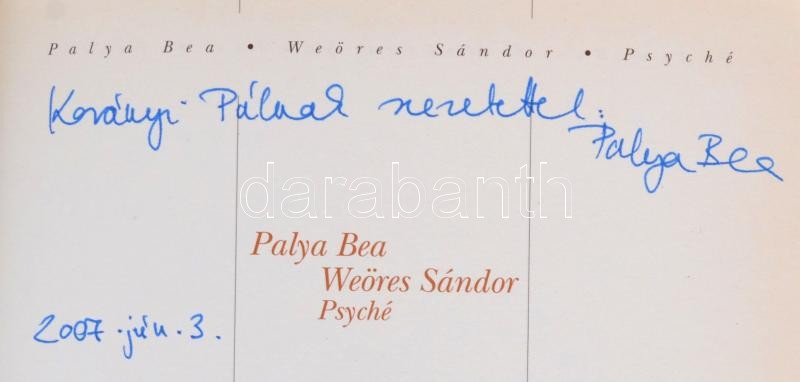 Palya Bea • Weöres Sándor • Psyché
Korányi Pálnak szeretettel:
Palya Bea
darabanth
Palya Bea
Weöres Sándor
Psyché
2007. jún. 3.